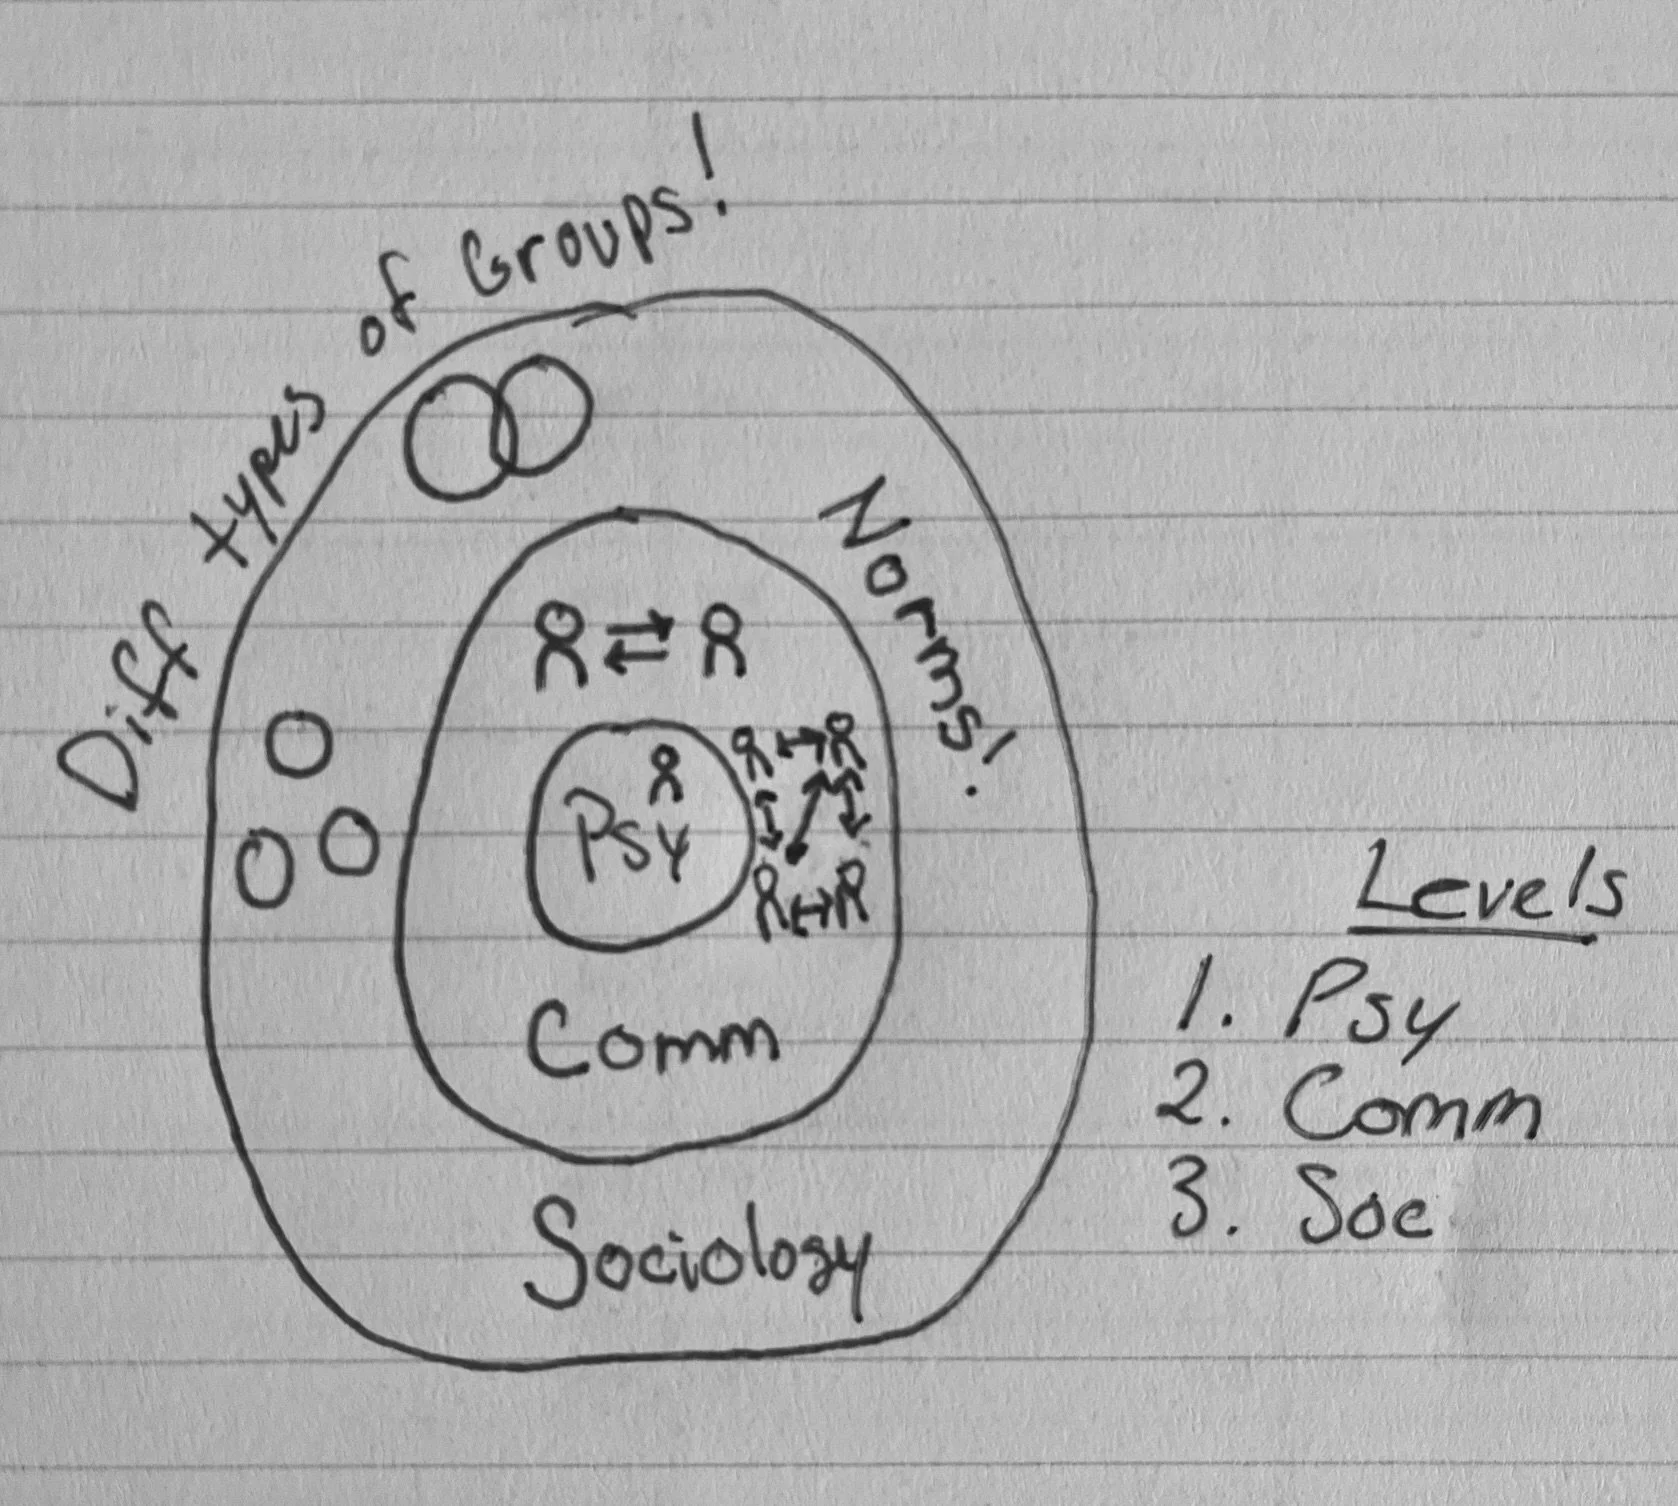 Diff types of Groups!
Norms!
Psy
Comm
Sociology
Levels
1. Psy
2. Comm
3. Soc